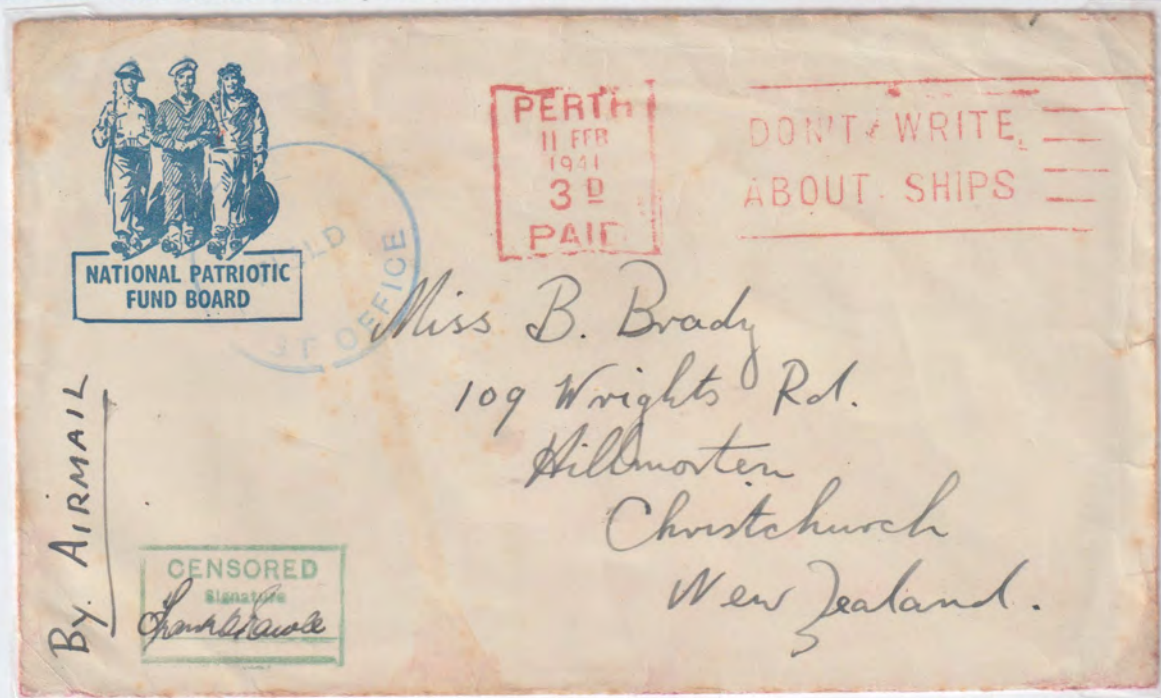 NATIONAL PATRIOTIC
FUND BOARD
PERTH
11 FEB
1941
3D
PAID
DON'T WRITE
ABOUT SHIPS
OFFICE
Miss B. Brady
109 Wrights Rd.
Hillmorten
Christchurch
New Zealand.
By. AIRMAIL
CENSORED
Signature